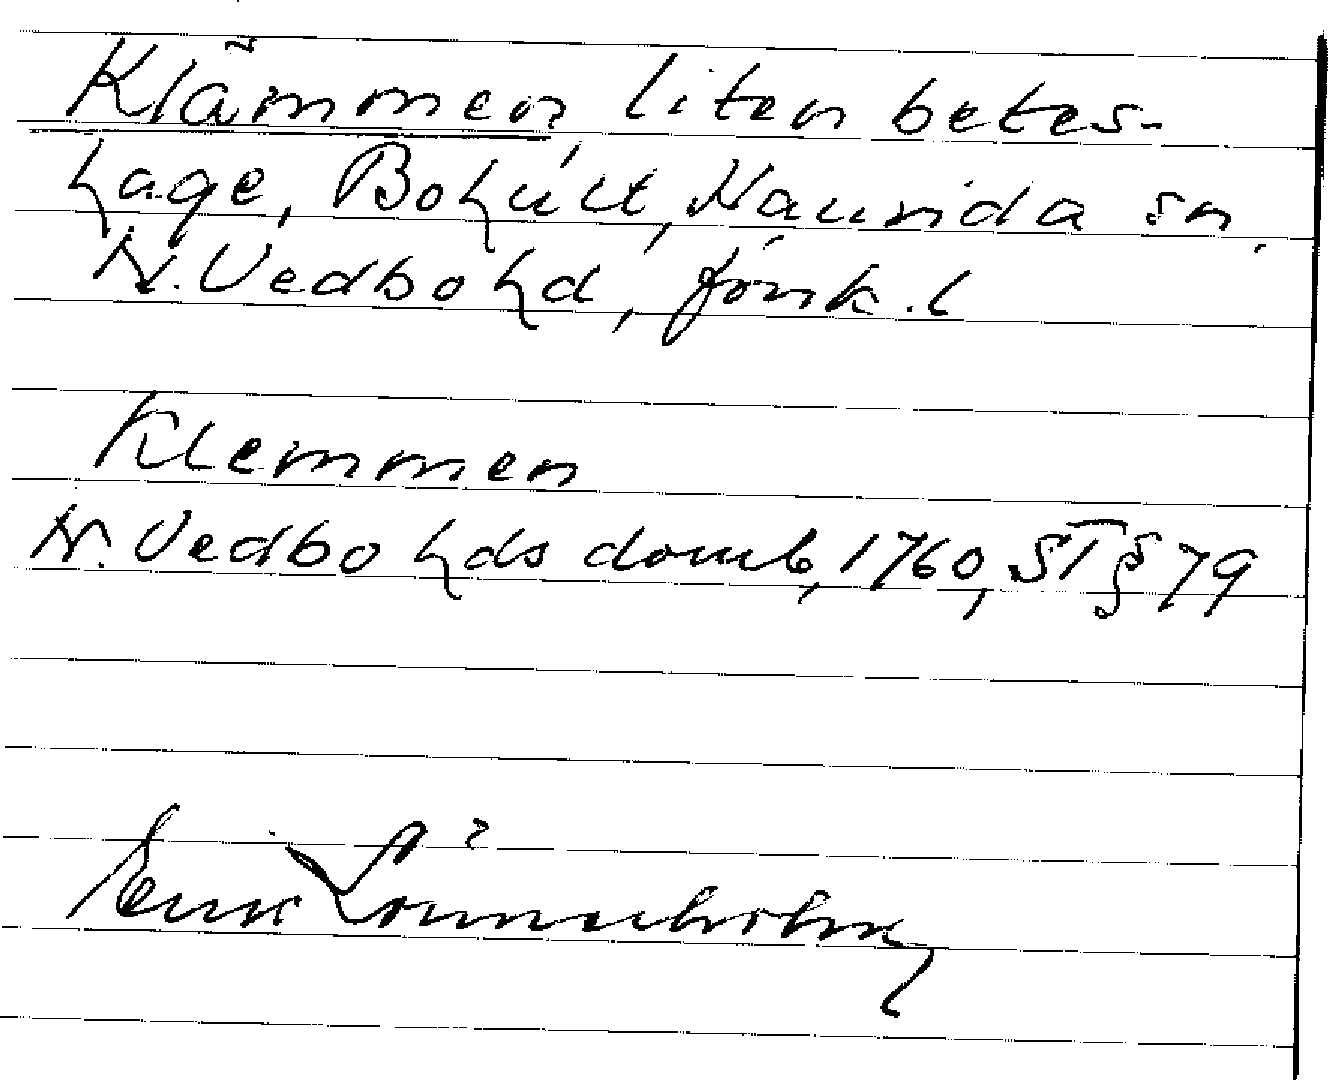 Klämmen, liten betes-
hage, Bohult, Haurida sn,
N. Vedbo hd, Jönk. l
Klemmen
N. Vedbo hds domb, 1760, ST § 79
Erik Lönnerholm